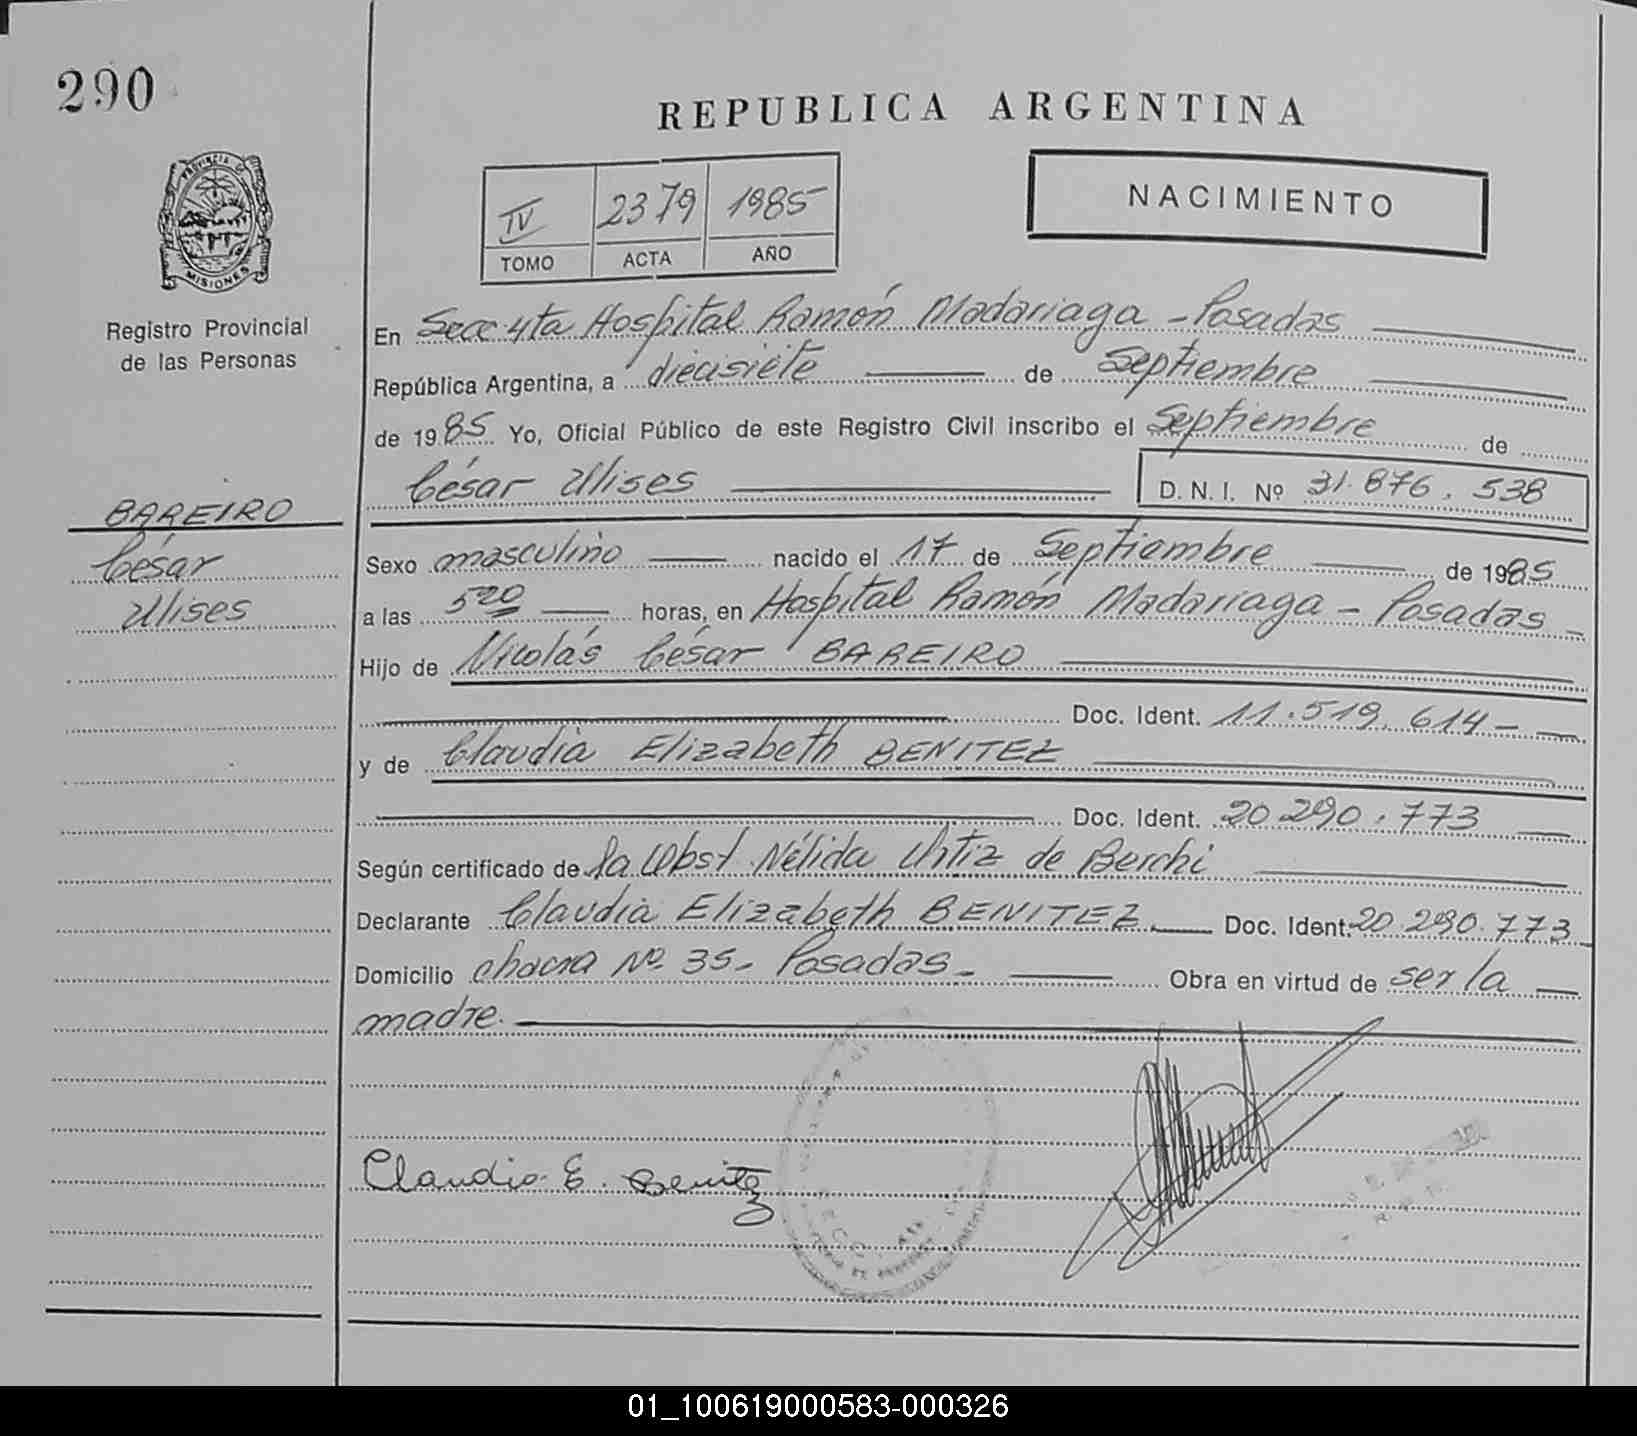 290
REPUBLICA ARGENTINA
PROVINCIA DE
MISIONES
Registro Provincial
de las Personas
IV 2379 1985
TOMO ACTA AÑO
NACIMIENTO
En Secc 4ta Hospital Ramón Madariaga - Posadas
República Argentina, a diecisiete de Septiembre
de 1985 Yo, Oficial Público de este Registro Civil inscribo el Septiembre de
César Ulises D.N.I. Nº 31.876.538
BAREIRO
César
Ulises
Sexo masculino nacido el 17 de Septiembre de 1985
a las 5 20 horas, en Hospital Ramón Madariaga - Posadas -
Hijo de Nicolás César BAREIRO
Doc. Ident. 11.519.614 -
y de Claudia Elizabeth BENITEZ
Doc. Ident. 20.290.773
Según certificado de la Obst. Nélida Ortiz de Berchi
Declarante Claudia Elizabeth BENITEZ Doc. Ident. 20.290.773
Domicilio chacra Nº 35 - Posadas - Obra en virtud de ser la
madre.
Claudia E. Benitez
01_100619000583-000326